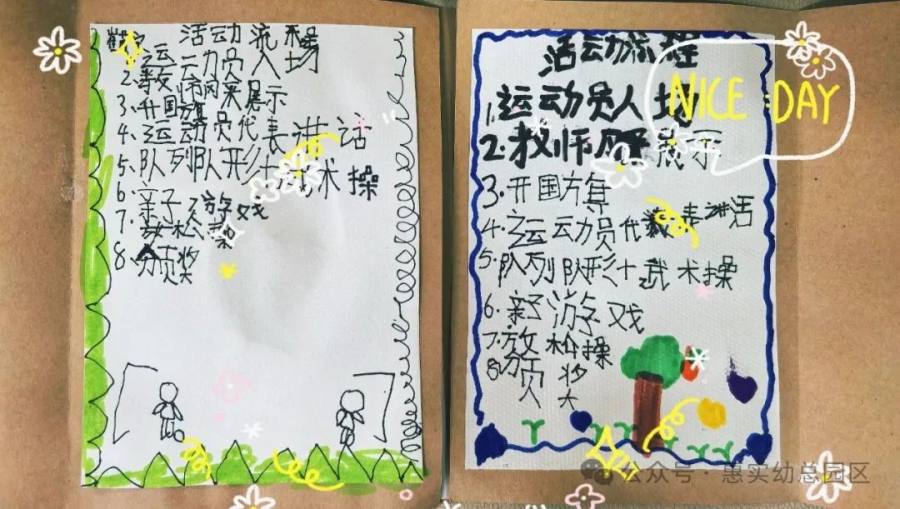 活动流程
1.运动员入场
2.教师风采展示
3.升国旗
4.运动员代表讲话
5.队列队形+武术操
6.亲子游戏
7.放松操
8.颁奖
活动流程
1.运动员入场
2.教师风采展示
3.升国旗
4.运动员代表讲话
5.队列队形+武术操
6.亲子游戏
7.放松操
8.颁奖
NICE DAY
公众号·惠实幼总园区